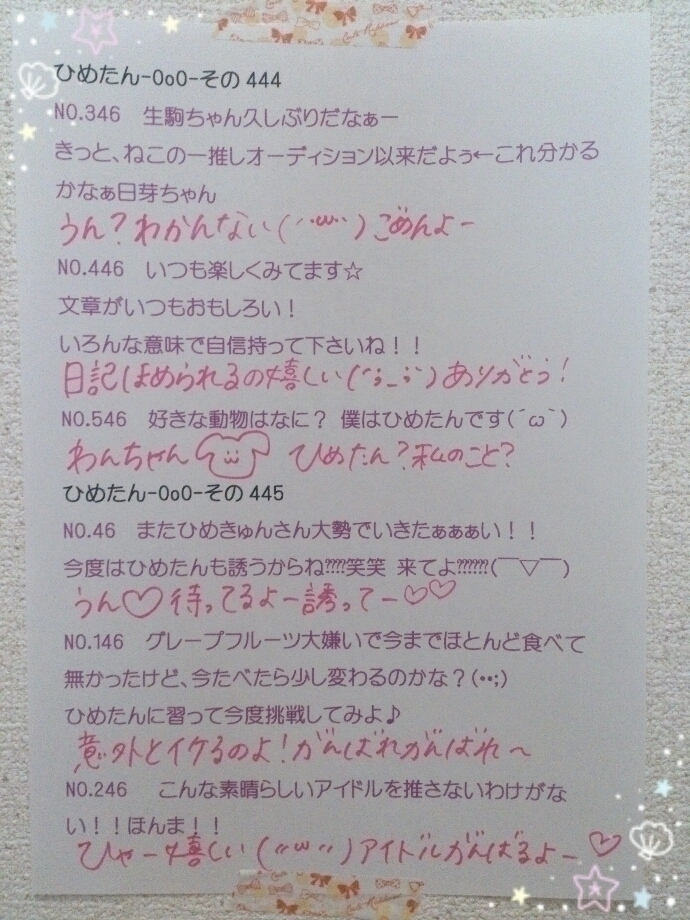 ひめたん-OoO-その444
NO.346 生駒ちゃん久しぶりだなぁー
きっと、ねこの一推しオーディション以来だよぅ←これ分かる
かなぁ日芽ちゃん
うん？わかんない(´･ω･`)ごめんよー
NO.446 いつも楽しくみてます☆
文章がいつもおもしろい！
いろんな意味で自信持って下さいね！！
日記ほめられるの嬉しい(´;_;`)ありがとう！
NO.546 好きな動物はなに？ 僕はひめたんです(´ω｀)
わんちゃん ひめたん？私のこと？
ひめたん-OoO-その445
NO.46 またひめきゅんさん大勢でいきたぁぁぁい！！
今度はひめたんも誘うからね⁇⁇笑笑 来てよ⁇⁇⁇(￣▽￣)
うん♡待ってるよー誘ってー♡♡
NO.146 グレープフルーツ大嫌いで今までほとんど食べて
無かったけど、今たべたら少し変わるのかな？(••;)
ひめたんに習って今度挑戦してみよ♪
意外とイケるのよ！がんばれがんばれ〜
NO.246 こんな素晴らしいアイドルを推さないわけがな
い！！ほんま！！
ひゃー嬉しい(〃ω〃)アイドルがんばるよー♡